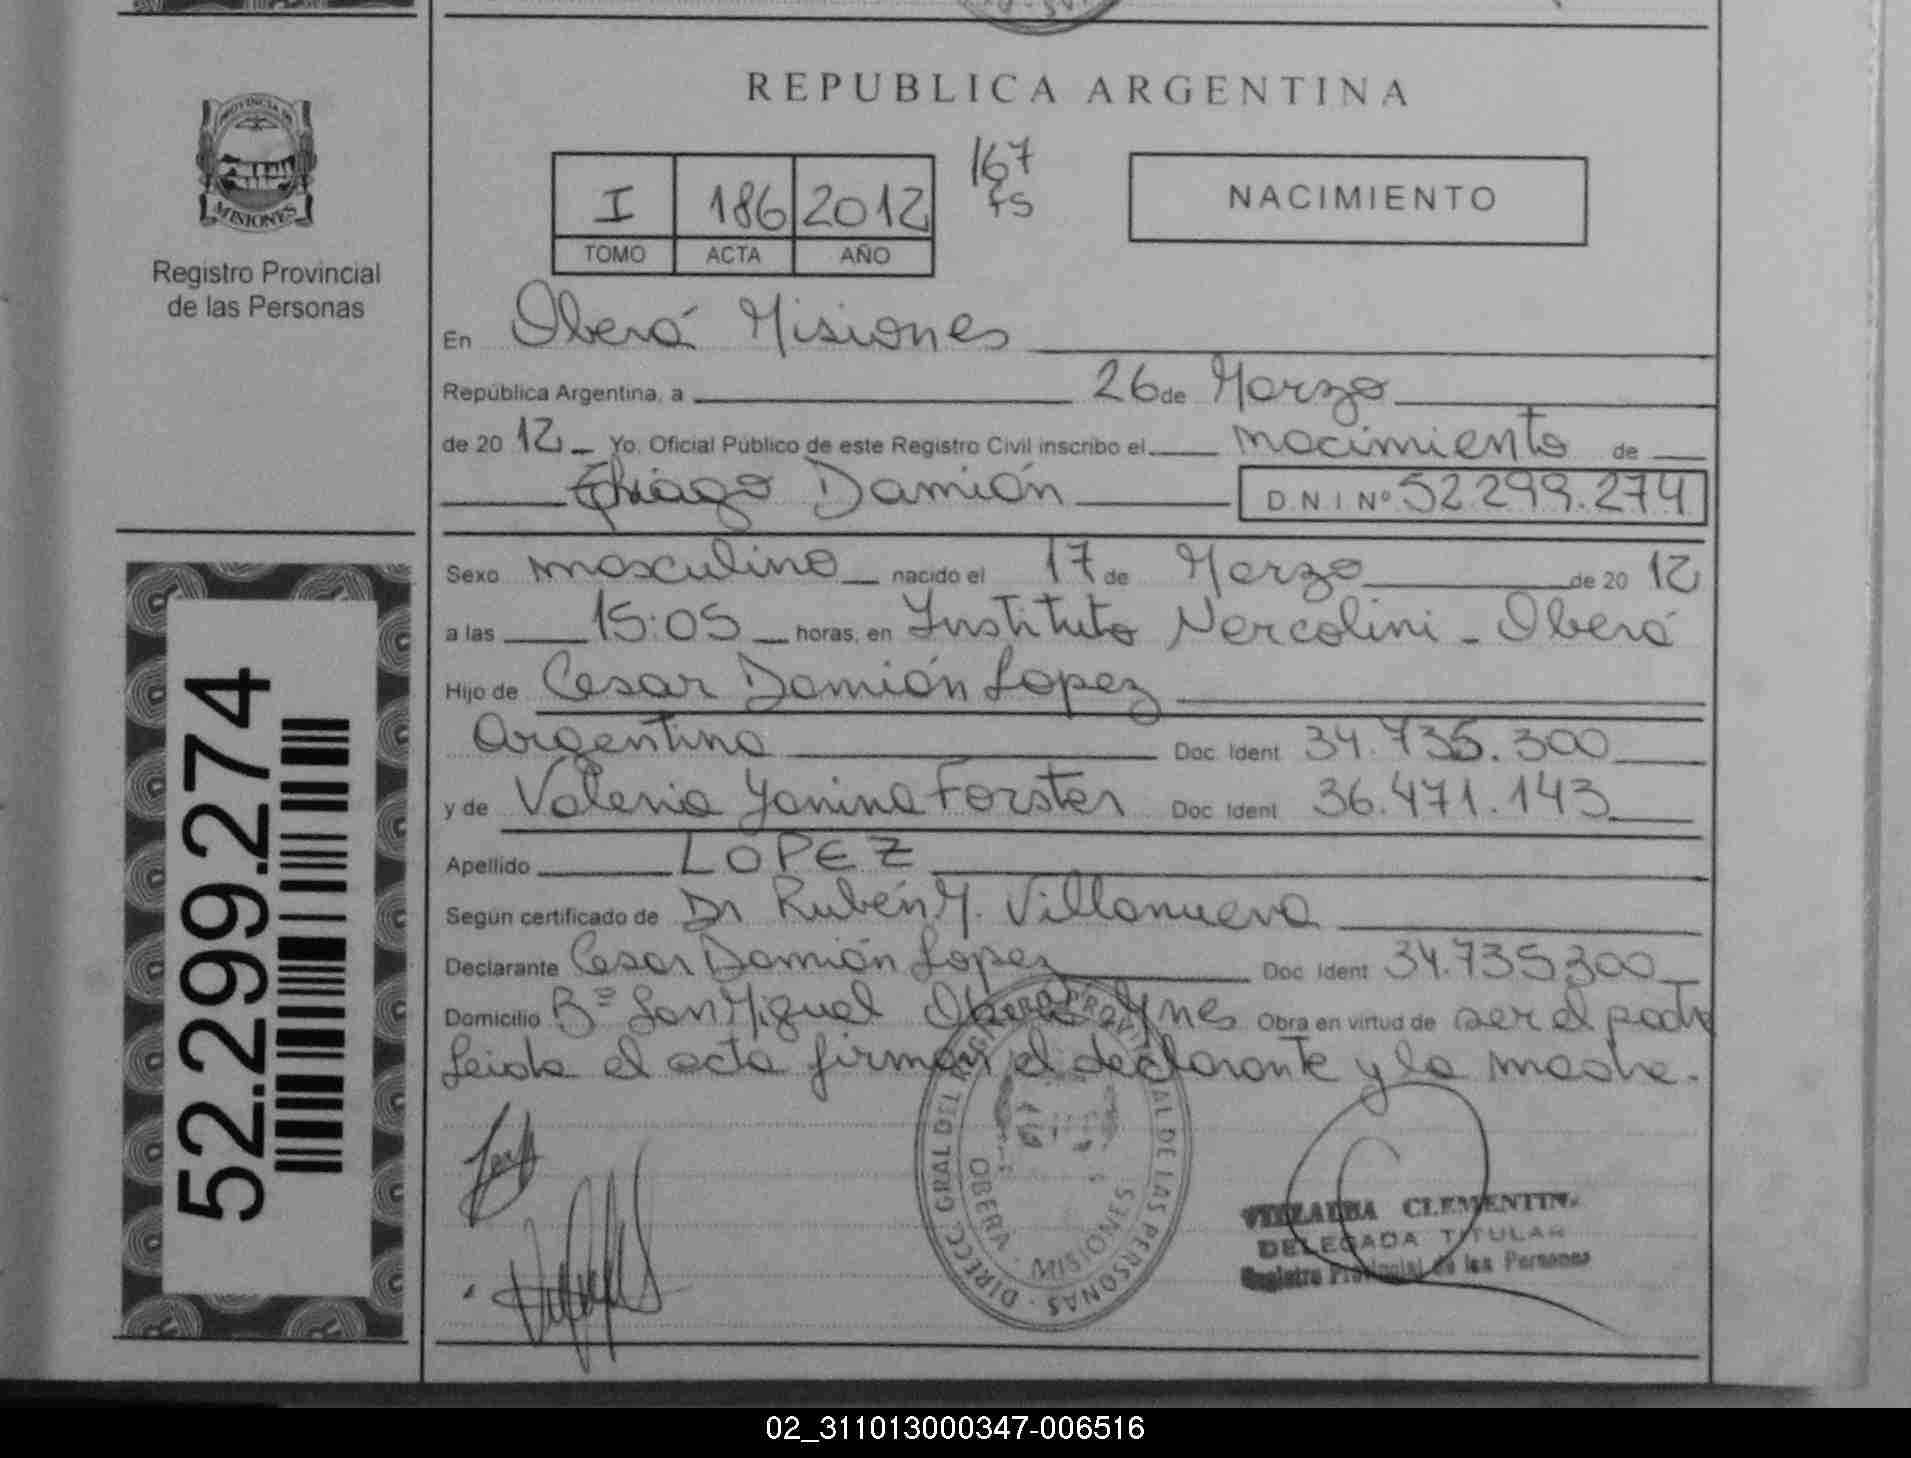 REPUBLICA ARGENTINA
PROVINCIA DE
MISIONES
Registro Provincial
de las Personas
I 186 2012
TOMO ACTA AÑO
167
fs
NACIMIENTO
En Oberá Misiones
República Argentina, a 26 de Marzo
de 20 12 Yo, Oficial Público de este Registro Civil inscribo el nacimiento de
Thiago Damián D.N.I Nº 52.299.274
Sexo masculino nacido el 17 de Marzo de 20 12
a las 15:05 horas, en Instituto Nercolini - Oberá
Hijo de Cesar Damián Lopez
Argentina Doc. Ident. 34.735.300
y de Valeria Yanina Forster Doc. Ident. 36.471.143
Apellido LOPEZ
Según certificado de Dr Rubén M. Villanueva
Declarante Cesar Damián Lopez Doc. Ident. 34.735300
Domicilio Bº San Miguel Oberá Mnes Obra en virtud de ser el padre
Leida el acta firman el declarante y la madre.
52.299.274
DIRECC GRAL DEL REGISTRO PROVINCIAL DE LAS PERSONAS
OBERA - MISIONES
VILLALBA CLEMENTIN
DELEGADA TITULAR
Registro Provincial de las Personas
02_311013000347-006516